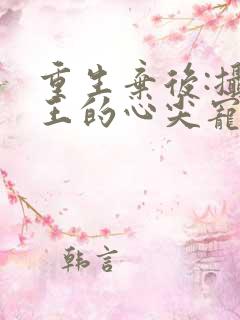 重生棄後:攝
王的心尖寵
韩言